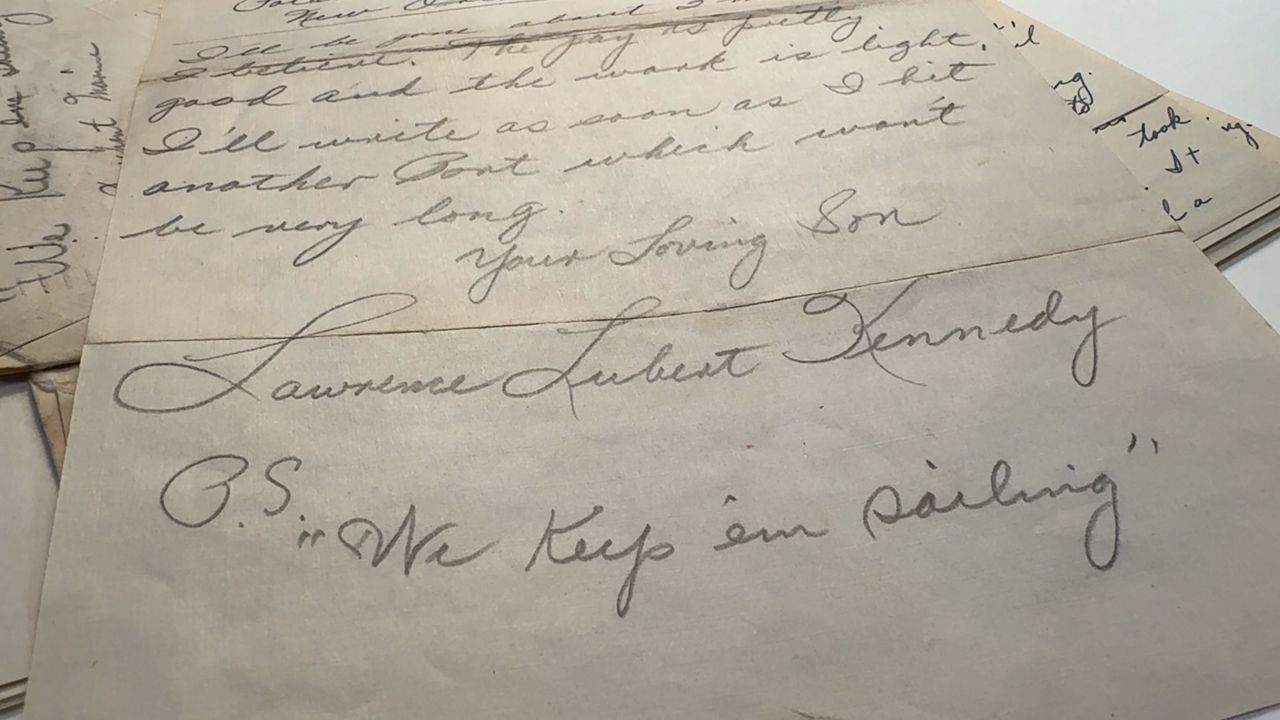 New
I'll be gone about 3
I believe. The pay is pretty
good and the work is light.
I'll write as soon as I hit
another Port which won't
be very long.
Your Loving Son
Lawrence Lubert Kennedy
P.S. "We Keep 'em sailing"
We Keep em
took
It